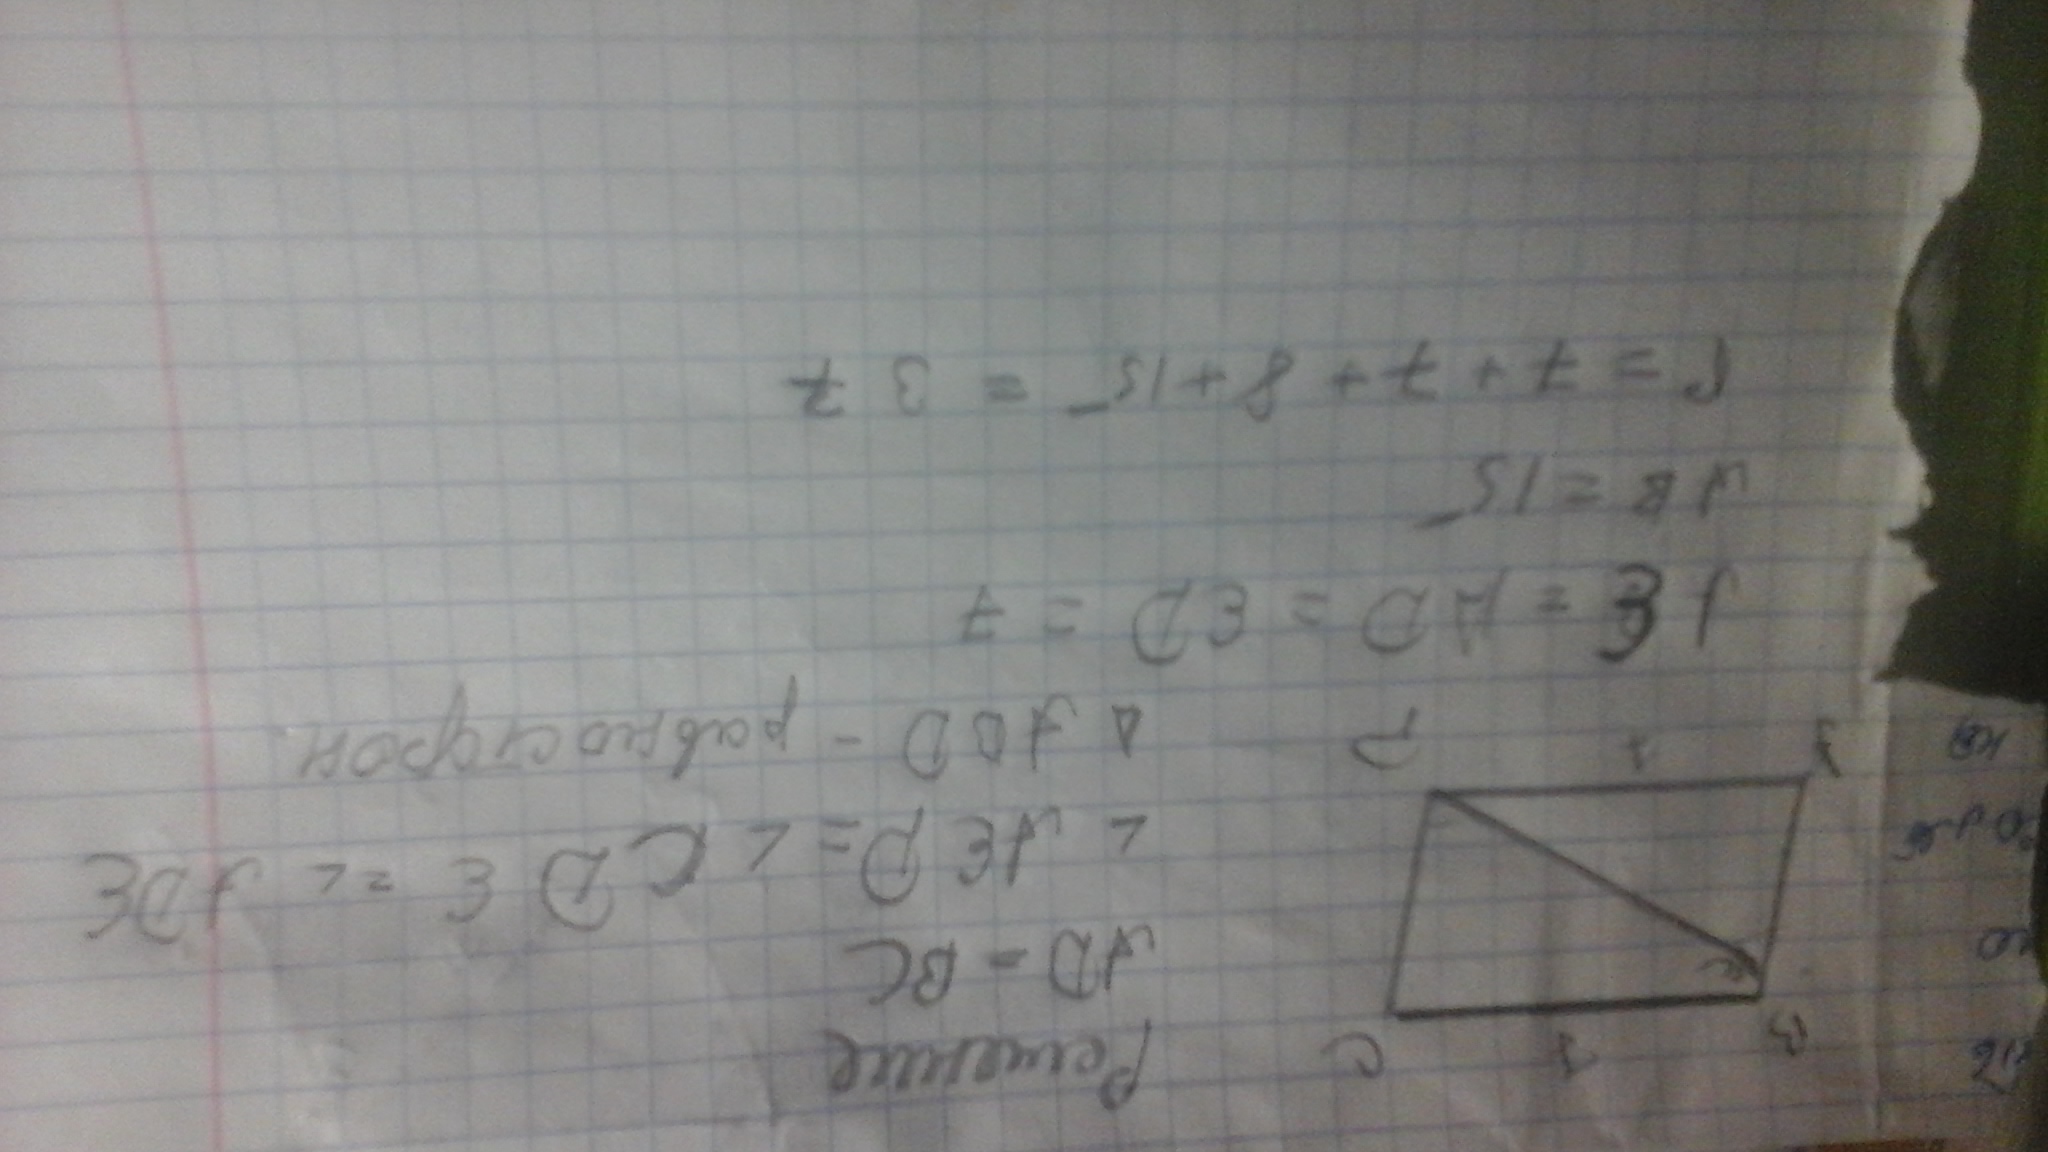 Решение
AD = BC
∠ AED = ∠ CDE = ∠ ADE
Δ AOD - равносторон
AE = AD = ED = 7
AB = 15
P = 7 + 7 + 8 + 15 = 37
B
C
A
D